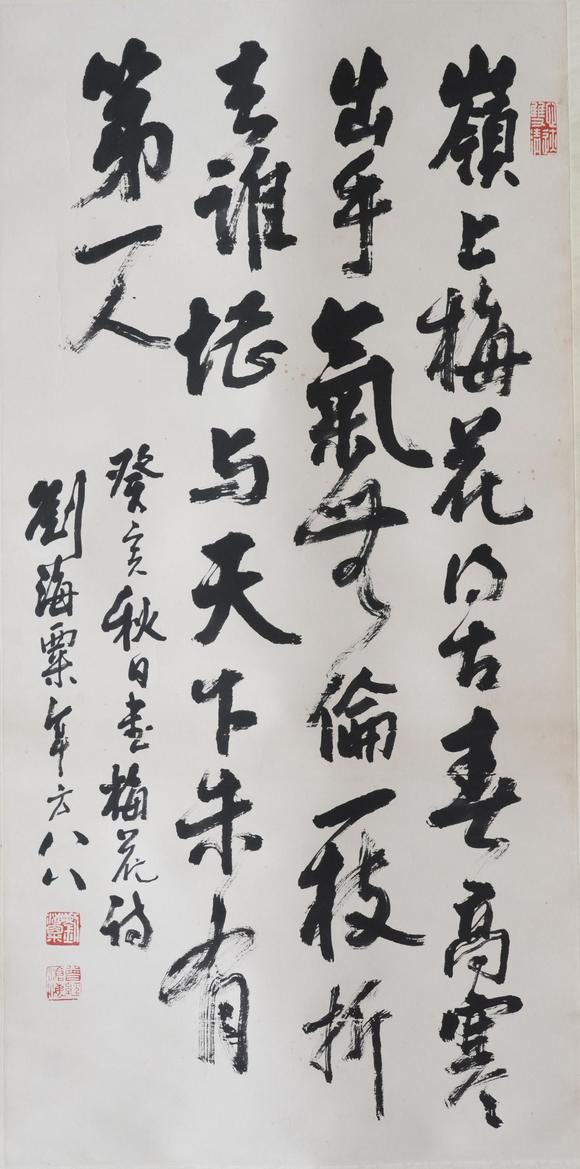 嶺上梅花得古春高寒
出手氣無倫一枝折
去誰堪与天下未有
第一人
癸亥秋日書梅花詩
劉海粟年方八八
劉海粟
曾經滄海